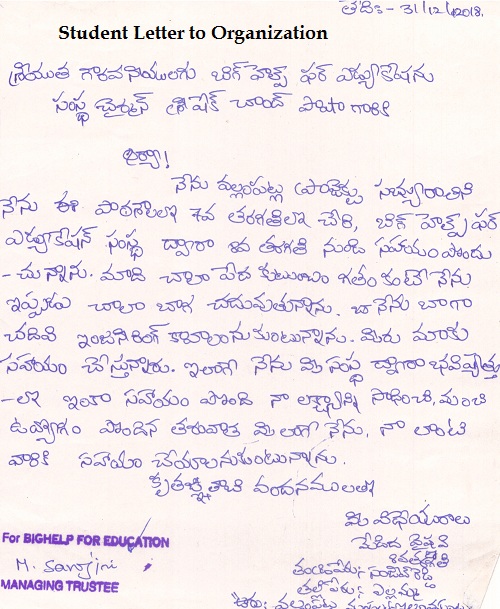 తేది:- 31/12/2018.
Student Letter to Organization
శ్రీయుత గౌరవనీయులగు బిగ్ హెల్ప్ ఫర్ ఎడ్యుకేషను
సంస్థ చైర్మన్ శ్రీ షేక్ చాంద్ పాషా గారికి
ఆర్యా!
నేను
నేను ఈ పాఠశాలలో 7వ తరగతిలో చేరి, బిగ్ హెల్ప్ ఫర్
ఎడ్యుకేషన్ సంస్థ ద్వారా 8వ తరగతి నుండి సహాయం పొందు
-చున్నాను. మాది చాలా పేద కుటుంబం గతం కంటే నేను
ఇప్పుడు చాలా బాగ చదువుతున్నాను. నేను బాగా
చదివి ఇంజనీరింగ్ కావాలనుకుంటున్నాను. మీరు మాకు
సహాయం చేస్తున్నారు. ఇలాగే నేను మీ సంస్థ ద్వారా భవిష్యత్తు
-లో ఇంకా సహాయం పొంది నా లక్ష్యాన్ని సాధించి, మంచి
ఉద్యోగం పొందిన తరువాత మీలాగే నేను, నా లాంటి
వారికి సహాయం చేయాలనుకుంటున్నాను.
కృతజ్ఞతాది వందనములతో
మీ విధేయురాలు
మేడిద వైష్ణవి
తరగతి
For BIGHELP FOR EDUCATION
M. Sanjini
తండ్రిపేరు:
MANAGING TRUSTEE
తల్లిపేరు: ఎల్లమ్మ
ఊరు: